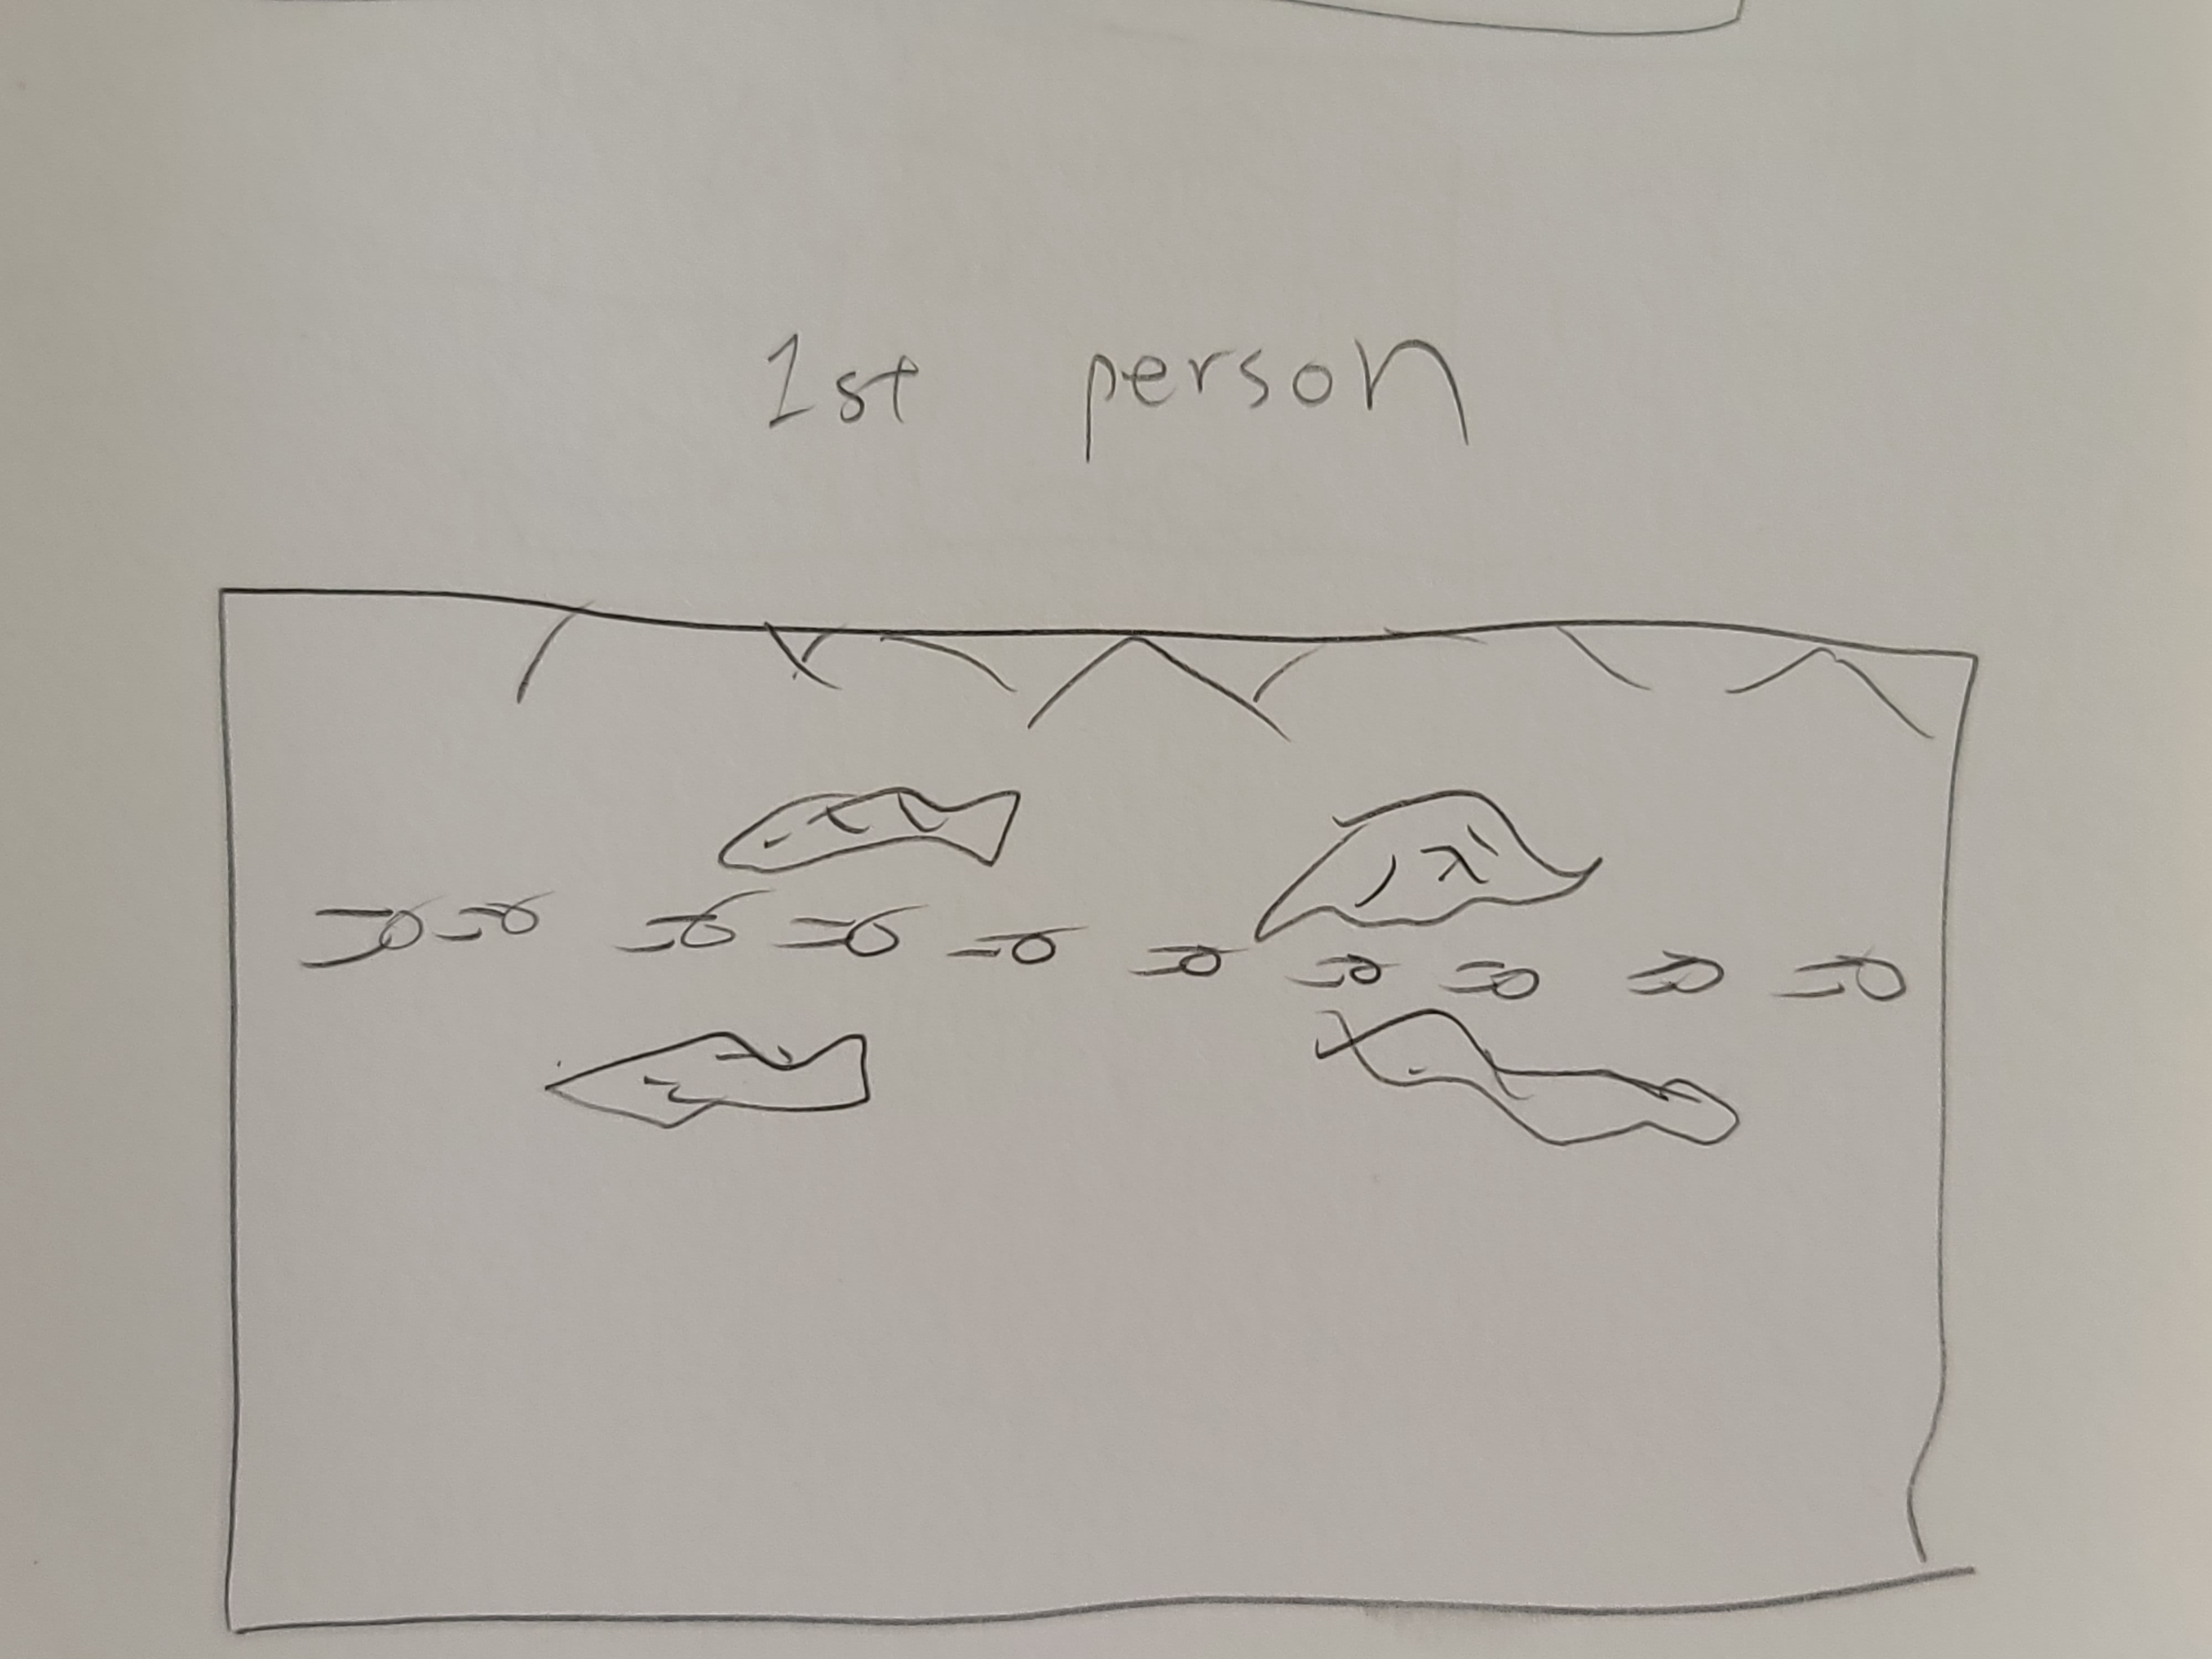 1st person